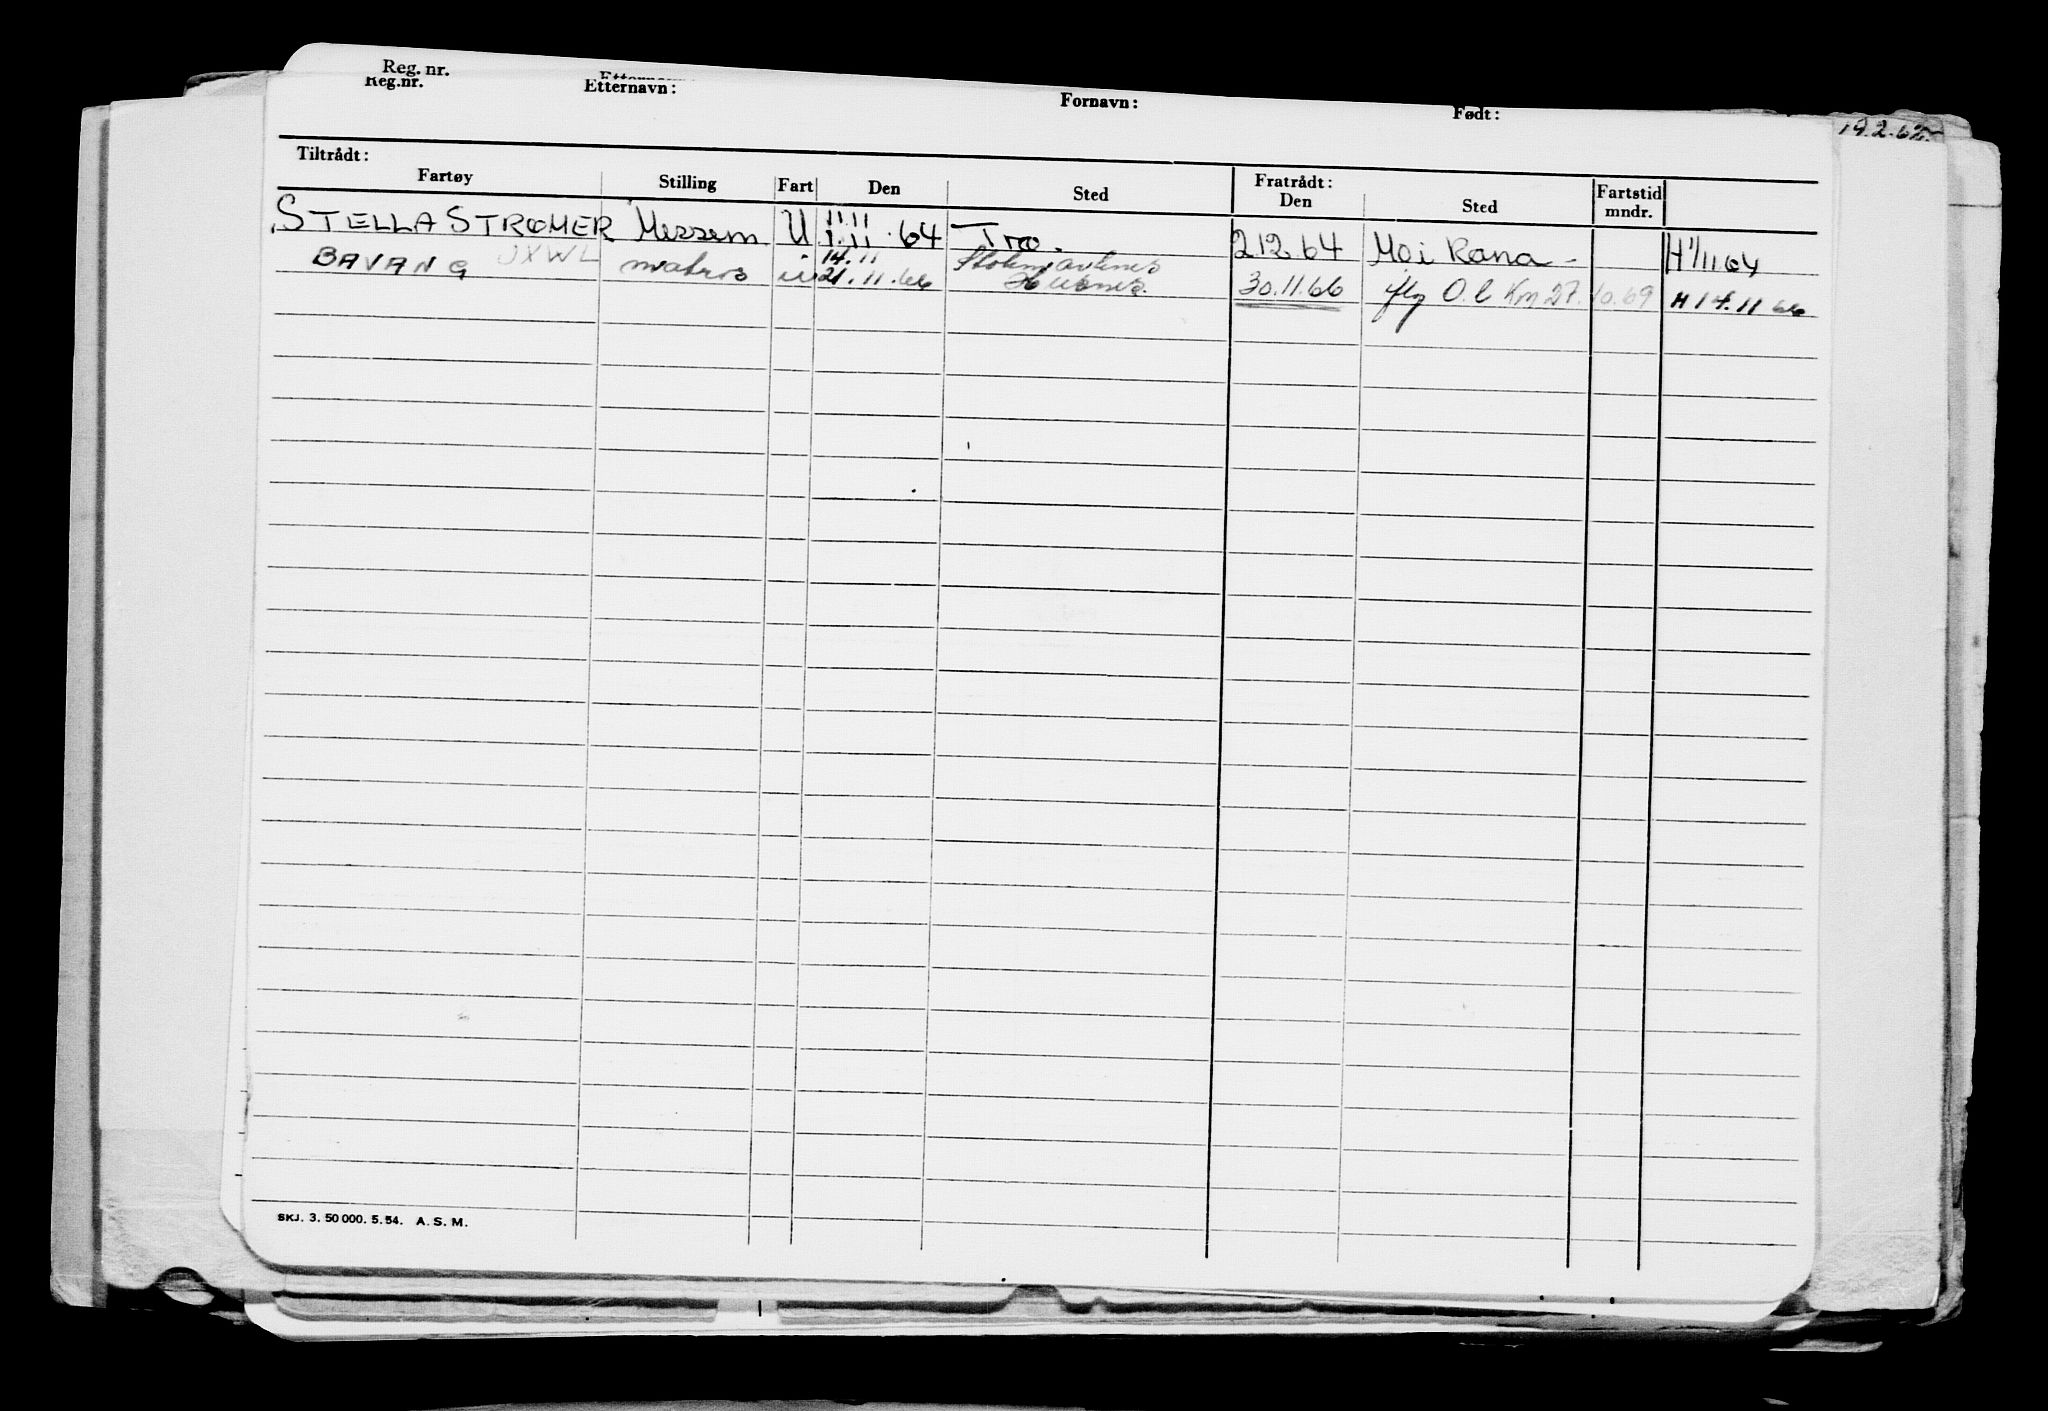 Reg. nr.
Reg.nr. Etternavn: Fornavn: Født: 19.2.62
Tiltrådt: Fratrådt:
Fartøy Stilling Fart Den Sted Den Sted Fartstid mndr.
STELLA STRØMER Messem U 11.11 1.11.64 Tro. 2 12 64 Mo i Rana - H 1/11 64
BAVANG JXWL matros u 14.11 21.11.66 Stokmarknes Husnes. 30.11.66 iflg O.l Km 27.10.69 H 14.11 66
SKJ. 3. 50 000. 5. 54. A. S. M.